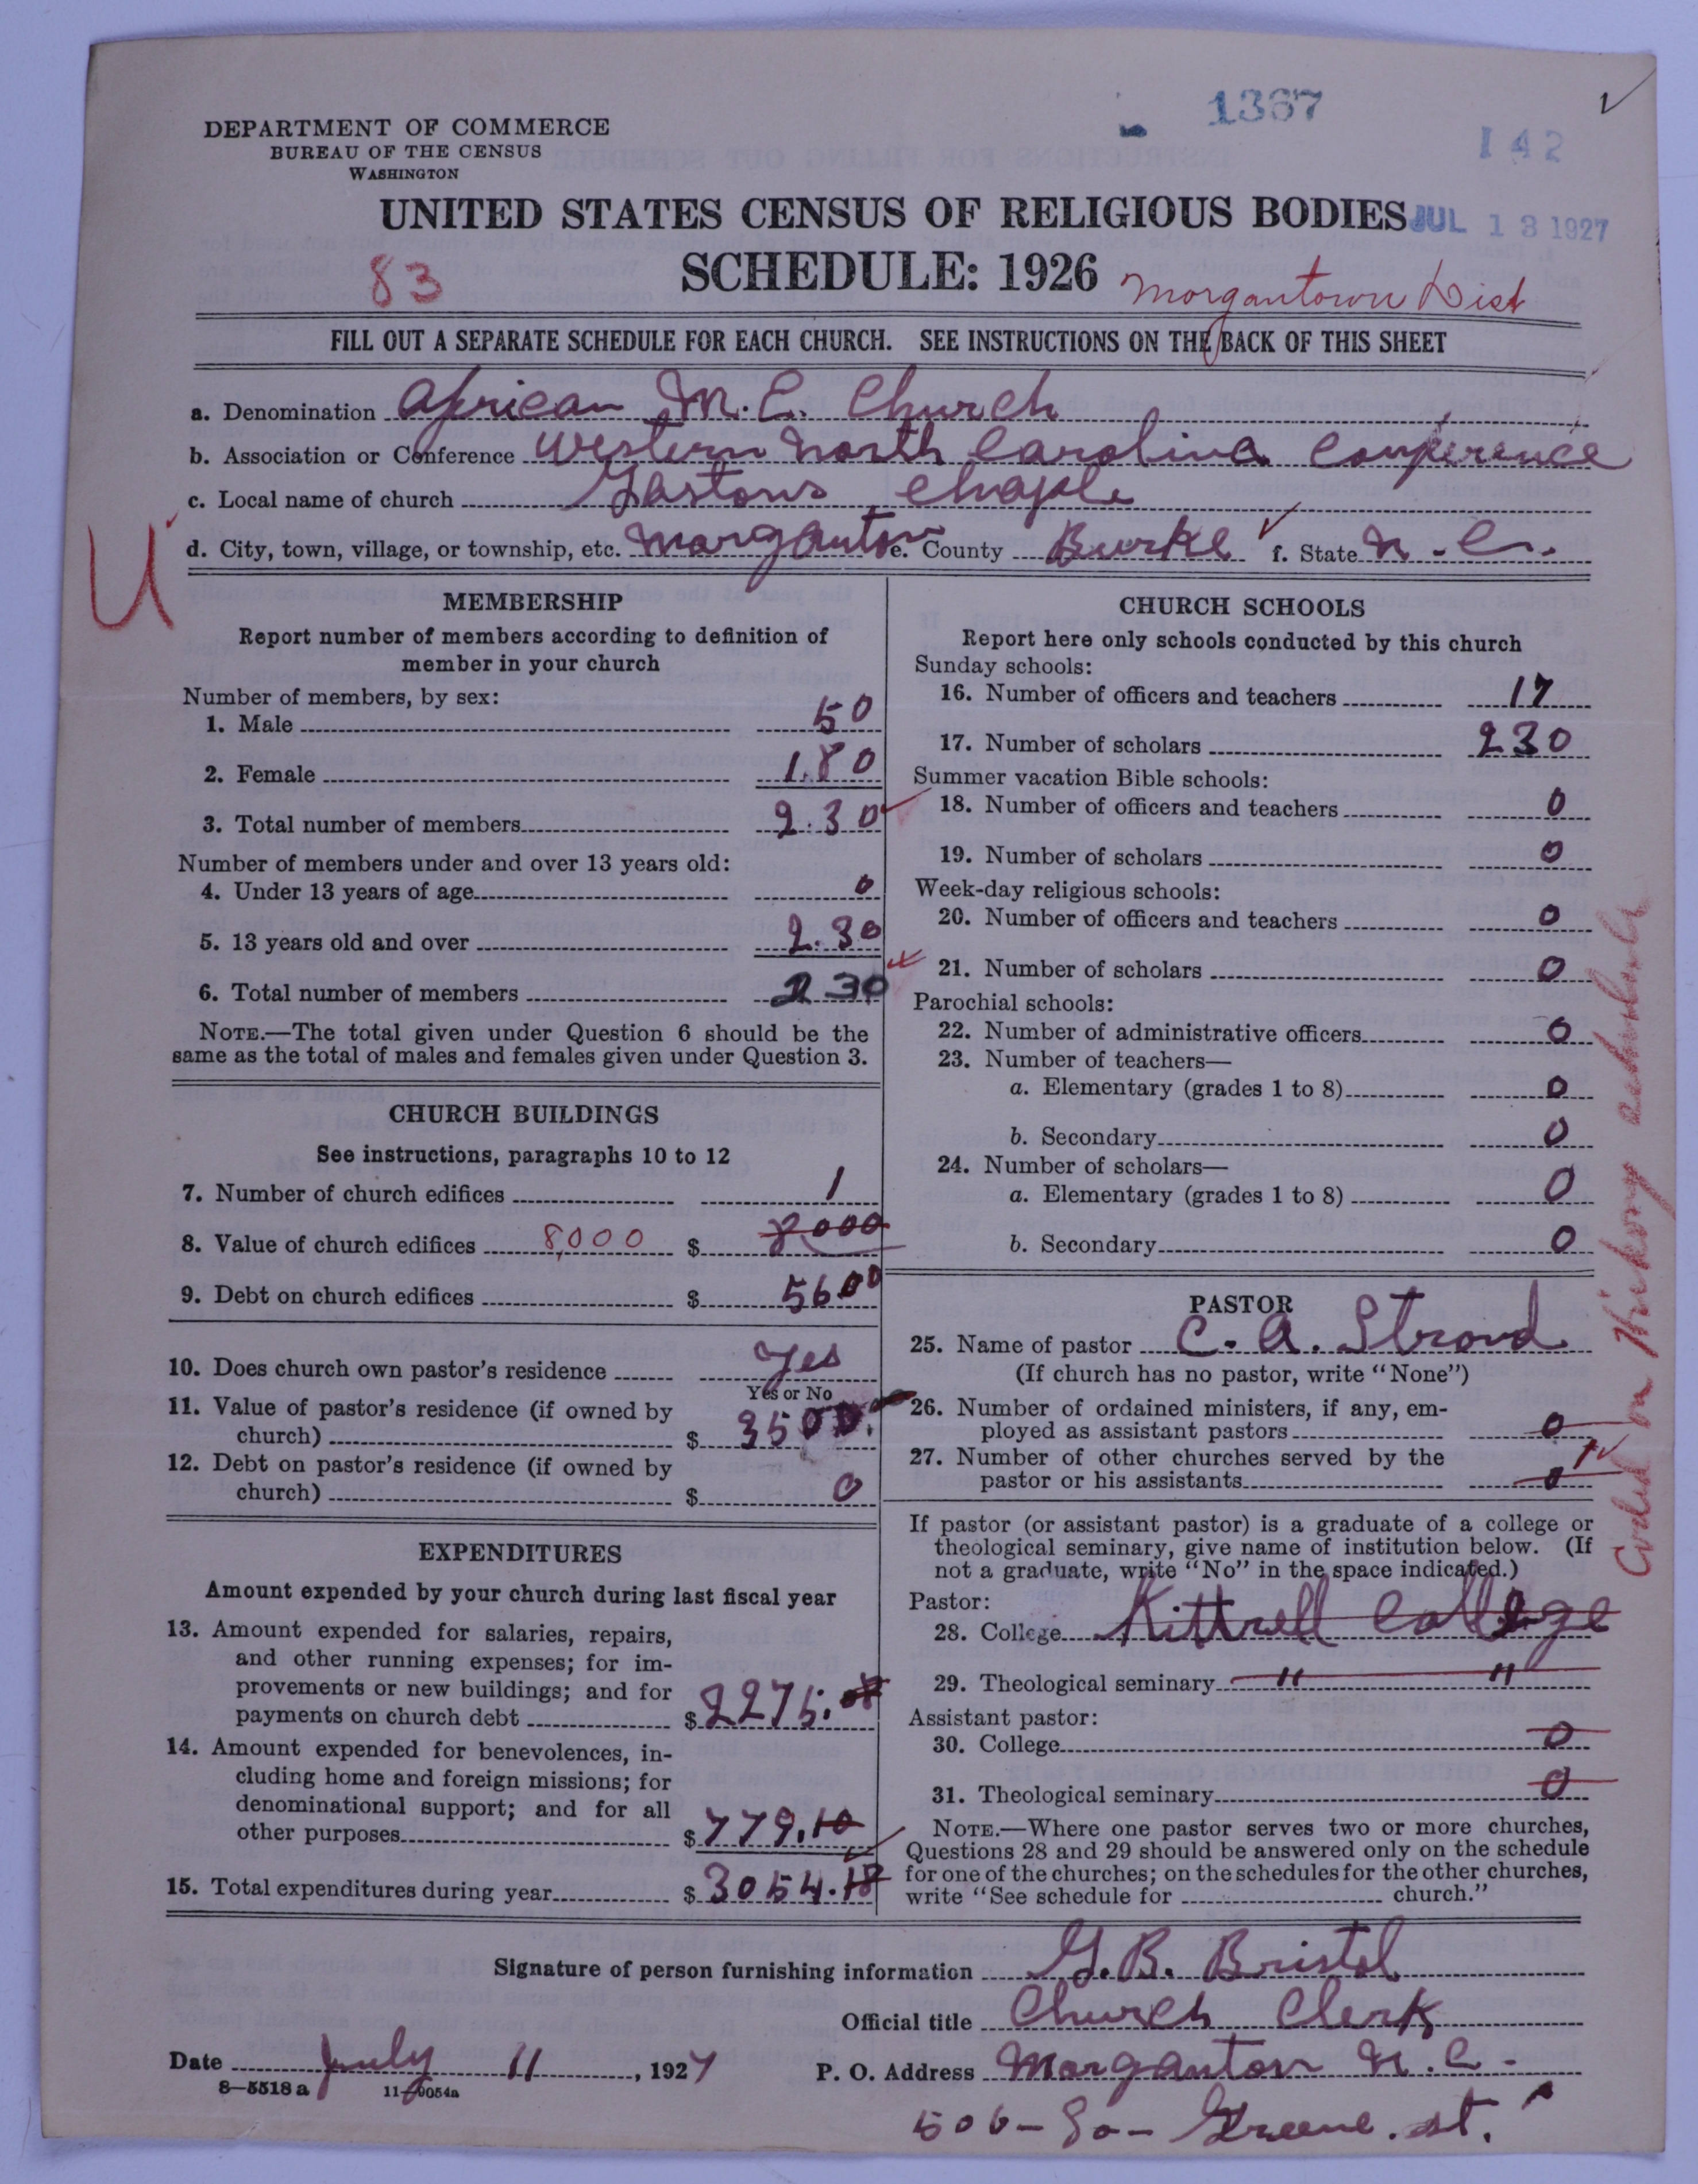 1367
142
DEPARTMENT OF COMMERCE
BUREAU OF THE CENSUS
WASHINGTON
UNITED STATES CENSUS OF RELIGIOUS BODIES
JUL 13 1927
83
SCHEDULE: 1926
Morgantown Dist
FILL OUT A SEPARATE SCHEDULE FOR EACH CHURCH. SEE INSTRUCTIONS ON THE BACK OF THIS SHEET
a. Denomination African M.E. Church
b. Association or Conference Western North Carolina Conference
c. Local name of church Gastons Chaple
U
d. City, town, village, or township, etc. Morganton e. County Burke f. State N.C.
MEMBERSHIP
Report number of members according to definition of
member in your church
Number of members, by sex:
1. Male 50
2. Female 180
3. Total number of members 230
Number of members under and over 13 years old:
4. Under 13 years of age 0
5. 13 years old and over 230
6. Total number of members 230
NOTE.—The total given under Question 6 should be the
same as the total of males and females given under Question 3.
CHURCH BUILDINGS
See instructions, paragraphs 10 to 12
7. Number of church edifices 1
8. Value of church edifices 8,000 $ 8000
9. Debt on church edifices $ 5600
10. Does church own pastor's residence Yes
Yes or No
11. Value of pastor's residence (if owned by
church) $ 3500.
12. Debt on pastor's residence (if owned by
church) $ 0
EXPENDITURES
Amount expended by your church during last fiscal year
13. Amount expended for salaries, repairs,
and other running expenses; for im-
provements or new buildings; and for
payments on church debt $ 2275.08
14. Amount expended for benevolences, in-
cluding home and foreign missions; for
denominational support; and for all
other purposes $ 779.10
15. Total expenditures during year $ 3054.18
CHURCH SCHOOLS
Report here only schools conducted by this church
Sunday schools:
16. Number of officers and teachers 17
17. Number of scholars 230
Summer vacation Bible schools:
18. Number of officers and teachers 0
19. Number of scholars 0
Week-day religious schools:
20. Number of officers and teachers 0
21. Number of scholars 0
Parochial schools:
22. Number of administrative officers 0
23. Number of teachers—
a. Elementary (grades 1 to 8) 0
b. Secondary 0
24. Number of scholars—
a. Elementary (grades 1 to 8) 0
b. Secondary 0
PASTOR
25. Name of pastor C. A. Stroud
(If church has no pastor, write "None")
26. Number of ordained ministers, if any, em-
ployed as assistant pastors 0
27. Number of other churches served by the
pastor or his assistants 0 1
If pastor (or assistant pastor) is a graduate of a college or
theological seminary, give name of institution below. (If
not a graduate, write "No" in the space indicated.)
Pastor:
28. College Kittrell College
29. Theological seminary " "
Assistant pastor:
30. College 0
31. Theological seminary 0
NOTE.—Where one pastor serves two or more churches,
Questions 28 and 29 should be answered only on the schedule
for one of the churches; on the schedules for the other churches,
write "See schedule for church."
Coded on Hickory schedule
Signature of person furnishing information G. B. Bristol
Official title Church Clerk
Date July 11, 1927 P. O. Address Morganton N.C.
8—5518 a 11—9054a
506 - So - Greene. st.